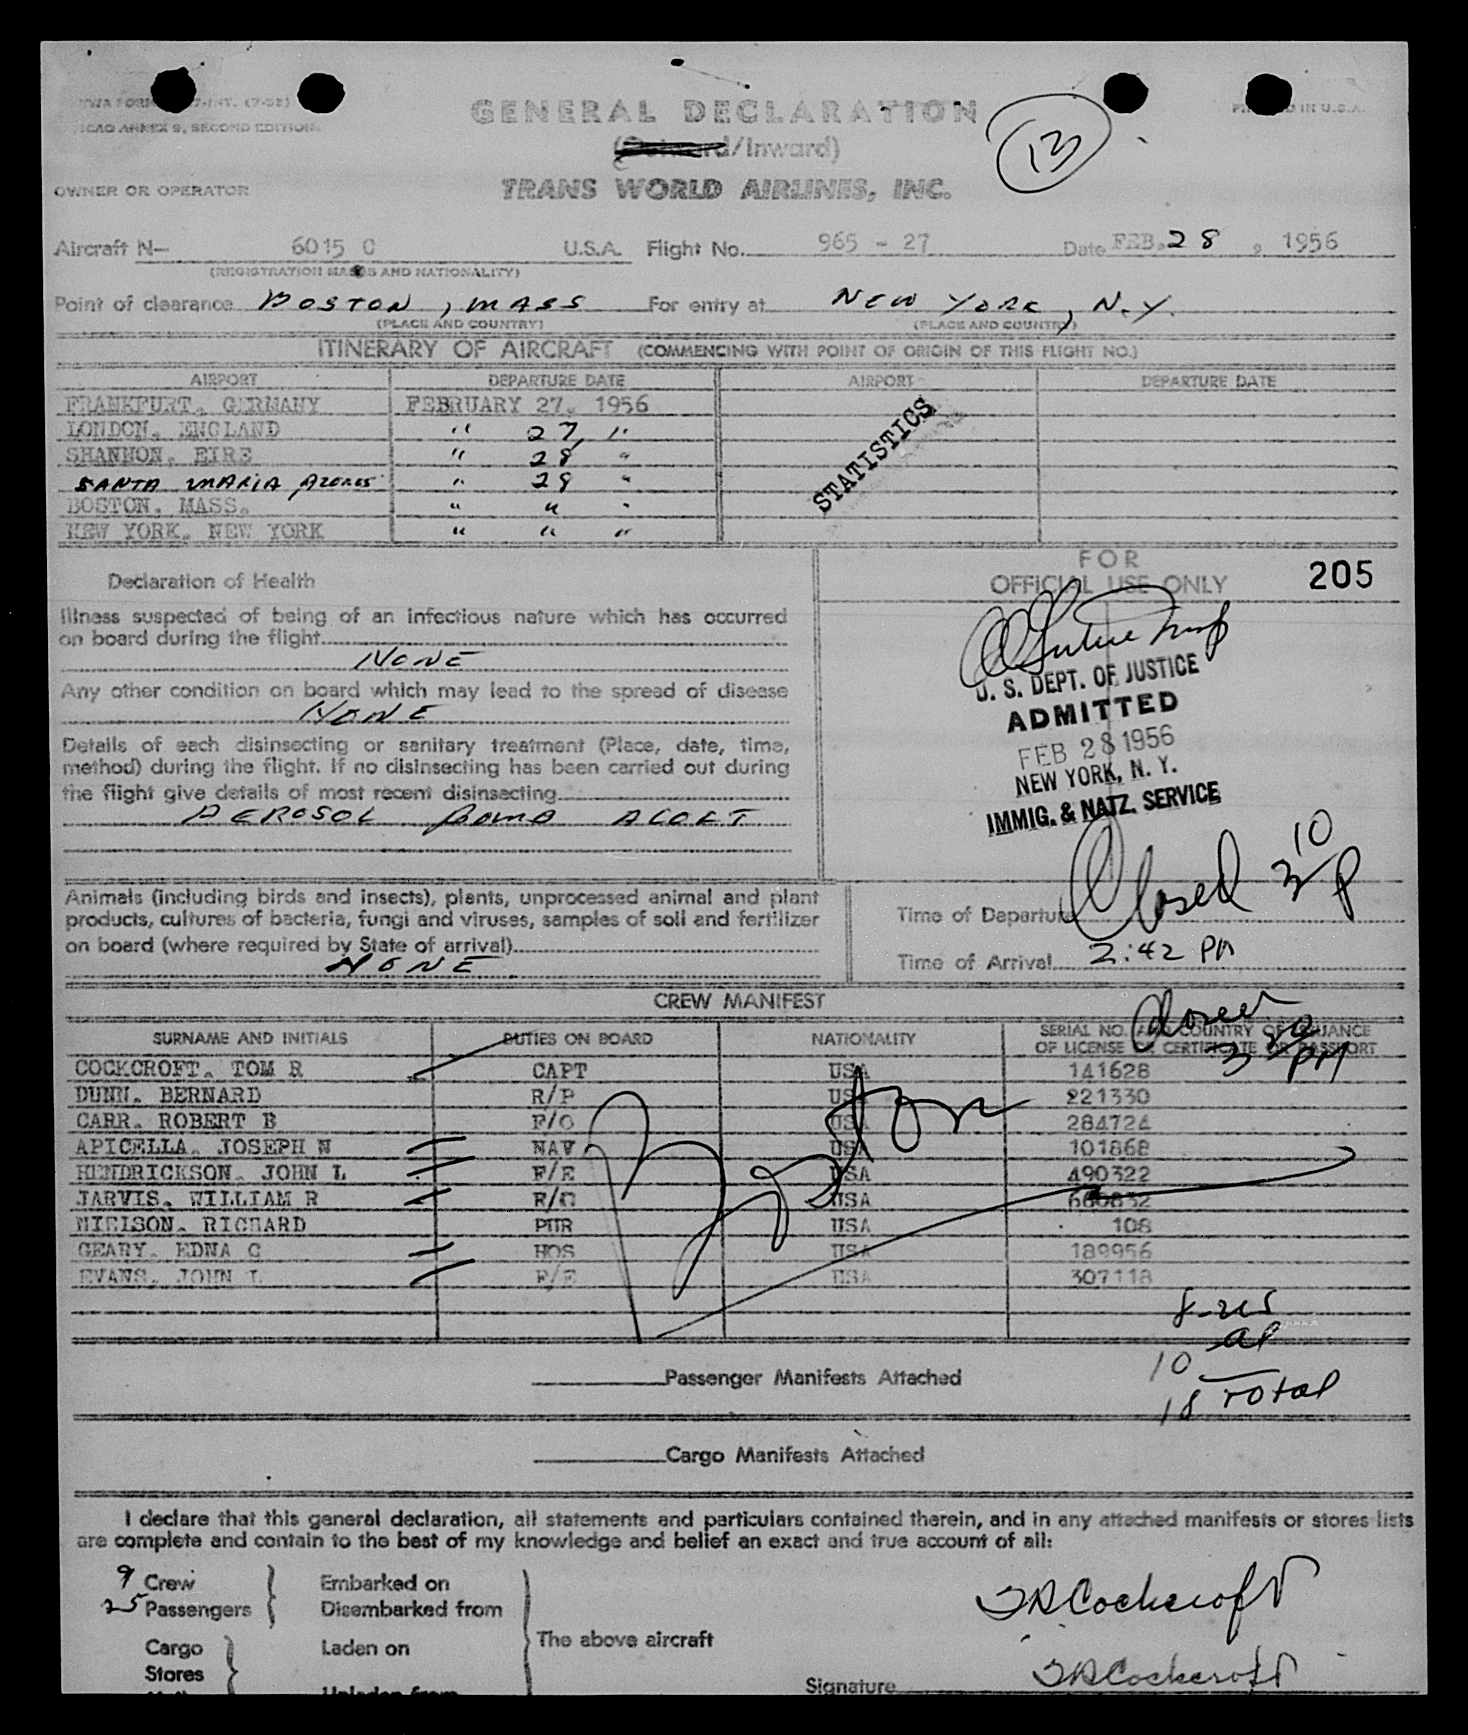 GENERAL DECLARATION
ICAO ANNEX 9, SECOND EDITION
(Outward/Inward)
13
OWNER OR OPERATOR
TRANS WORLD AIRLINES, INC.
Aircraft N- 6015 C U.S.A. Flight No. 965 - 27 Date FEB. 28, 1956
(REGISTRATION MARKS AND NATIONALITY)
Point of clearance BOSTON, MASS For entry at NEW YORK, N.Y.
(PLACE AND COUNTRY) (PLACE AND COUNTRY)
ITINERARY OF AIRCRAFT (COMMENCING WITH POINT OF ORIGIN OF THIS FLIGHT NO.)
AIRPORT DEPARTURE DATE AIRPORT DEPARTURE DATE
FRANKFURT, GERMANY FEBRUARY 27, 1956
LONDON, ENGLAND " 27, "
SHANNON, EIRE " 28 "
SANTA MARIA, AZORES " 28 "
BOSTON, MASS. " " "
NEW YORK, NEW YORK " " "
STATISTICS
FOR
OFFICIAL USE ONLY
205
Declaration of Health
Illness suspected of being of an infectious nature which has occurred
on board during the flight
NONE
Any other condition on board which may lead to the spread of disease
NONE
Details of each disinsecting or sanitary treatment (Place, date, time,
method) during the flight. If no disinsecting has been carried out during
the flight give details of most recent disinsecting
AEROSOL BOMB ALOFT
U. S. DEPT. OF JUSTICE
ADMITTED
FEB 28 1956
NEW YORK, N. Y.
IMMIG. & NATZ. SERVICE
Closed 3 10 P
Animals (including birds and insects), plants, unprocessed animal and plant
products, cultures of bacteria, fungi and viruses, samples of soil and fertilizer
on board (where required by State of arrival)
NONE
Time of Departure
Time of Arrival 2:42 PM
CREW MANIFEST
SURNAME AND INITIALS DUTIES ON BOARD NATIONALITY SERIAL NO. AND COUNTRY OF ISSUANCE
OF LICENSE OR CERTIFICATE OR PASSPORT
COCKCROFT, TOM R CAPT USA 141628
DUNN, BERNARD R/P USA 221330
CARR, ROBERT E F/O USA 284724
APICELLA, JOSEPH N NAV USA 101868
HENDRICKSON, JOHN L F/E USA 490322
JARVIS, WILLIAM R R/O USA 660832
NIELSON, RICHARD PUR USA 108
GEARY, EDNA C HOS USA 189956
EVANS, JOHN L F/E USA 307118
Boston
10
18 Total
Passenger Manifests Attached
Cargo Manifests Attached
I declare that this general declaration, all statements and particulars contained therein, and in any attached manifests or stores lists
are complete and contain to the best of my knowledge and belief an exact and true account of all:
9 Crew Embarked on
25 Passengers Disembarked from
TR Cockcroft
The above aircraft
Cargo Laden on
Stores
Signature TR Cockcroft